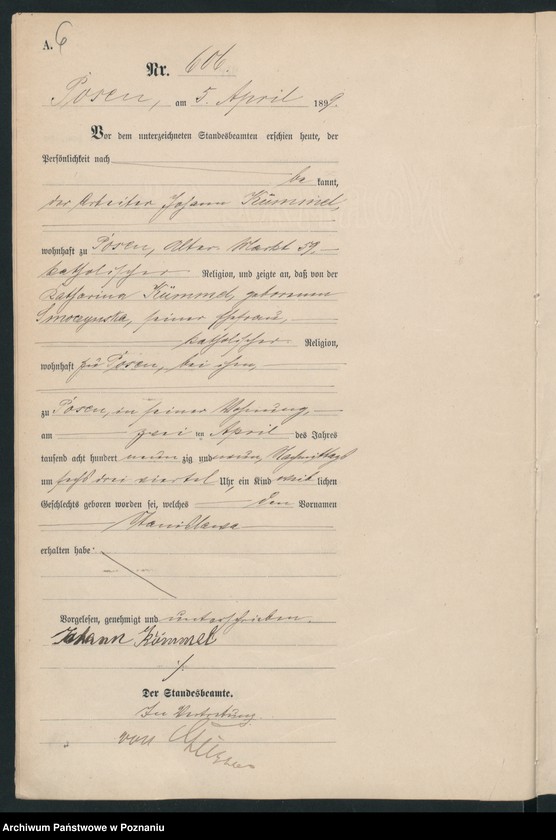 A. 6
Nr. 606.
Posen, am 5. April 1899
Vor dem unterzeichneten Standesbeamten erschien heute, der
Persönlichkeit nach
be kannt,
der Arbeiter Johann Kümmel,
wohnhaft zu Posen, Alter Markt 59,
katholischer Religion, und zeigte an, daß von der
Katharina Kümmel, geborenen
Smoczynska, seiner Ehefrau,
katholischer Religion,
wohnhaft zu Posen, bei ihm,
zu Posen, in seiner Wohnung,
am zwei ten April des Jahres
tausend acht hundert neun zig und neun, Nachmittags
um sechs drei viertel Uhr, ein Kind weib lichen
Geschlechts geboren worden sei, welches den Vornamen
Stanislawa
erhalten habe
Vorgelesen, genehmigt und unterschrieben.
Johann Kümmel
Der Standesbeamte.
In Vertretung
von
Archiwum Państwowe w Poznaniu